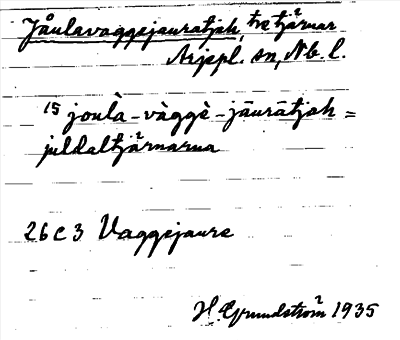 Jåulavaggejauratjah, tre tjärnar
Arjepl. sn, Nb. l.
15 joulà-vàggè-jāurātjah =
juldaltjärnarna
26 C 3 Vaggejaure
H. Grundström 1935